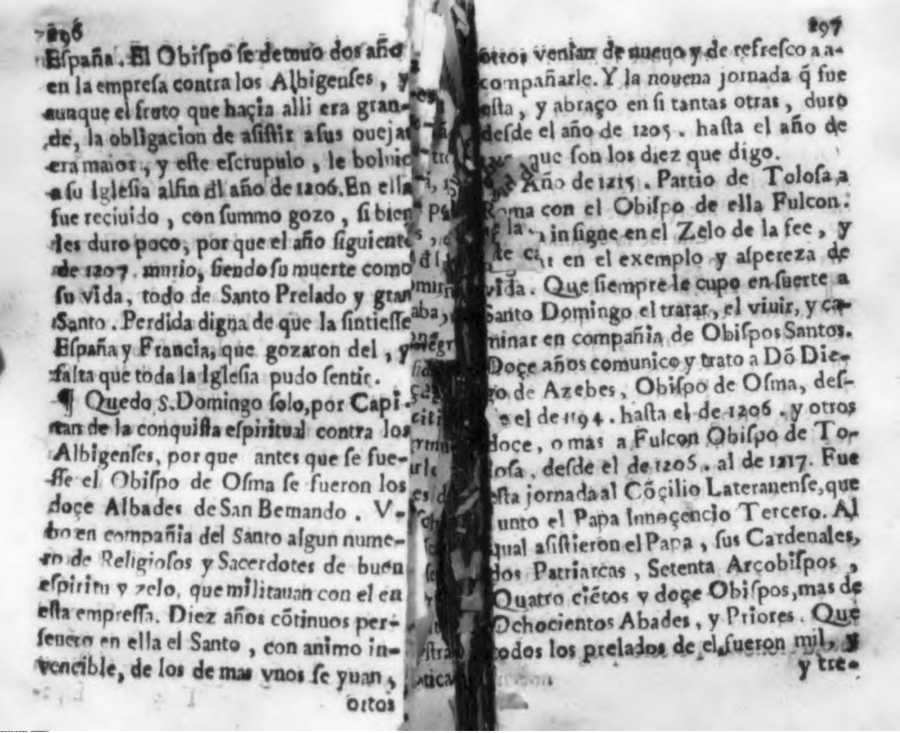 296
España. El Obiſpo ſe detuuo dos año
en la empreſa contra los Albigenſes, y
aunque el fruto que haçia alli era gran-
de, la obligacion de aſiſtir a ſus ouejas
era maior, y eſte eſcrupulo, le boluio
a ſu Igleſia alfin dl año de 1206. En ella
fue reciuido, con ſummo gozo, ſi bien
les duro poco, por que el año ſiguiente
de 1207. murio, ſiendo ſu muerte como
ſu vida, todo de Santo Prelado y gran
Santo. Perdida digna de que la ſintieſſe
Eſpaña y Francia, que gozaron del, y
falta que toda la Igleſia pudo ſentir.
¶ Quedo S. Domingo ſolo, por Capi-
tan de la conquiſta eſpiritual contra los
Albigenſes, por que antes que ſe fue-
ſſe el Obiſpo de Oſma ſe fueron los
doçe Albades de San Bernando. V-
bo en compañia del Santo algun nume-
ro de Religioſos y Sacerdotes de buen
eſpiritu y zelo, que militauan con el en
eſta empreſſa. Diez años cõtinuos per-
ſeuero en ella el Santo, con animo in-
vencible, de los de mas vnos ſe yuan,
ottos
297
ottos venian de nueuo y de refreſco a a-
compañarle. Y la nouena jornada q̃ fue
eſta, y abraço en ſi tantas otras, duro
desde el año de 1205. haſta el año de
que ſon los diez que digo.
Año de 1215. Partio de Toloſa, a
Roma con el Obiſpo de ella Fulcon.
inſigne en el Zelo de la fee, y
en el exemplo y aſpereza de
vida. Que ſiempre le cupo en ſuerte a
Santo Domingo el tratar, el viuir, y ca-
minar en compañia de Obiſpos Santos.
Doçe años comunico y trato a Dõ Die-
go de Azebes, Obiſpo de Oſma, deſ-
e el de 1194. haſta el de 1206. y otros
doce, o mas a Fulcon Obiſpo de To-
loſa, desde el de 1206. al de 1217. Fue
eſta jornada al Cõçilio Lateranenſe, que
junto el Papa Innoçencio Tercero. Al
qual aſiſtieron el Papa, ſus Cardenales,
dos Patriarcas, Setenta Arçobiſpos,
Quatro ciẽtos y doçe Obiſpos, mas de
Ochocientos Abades, y Priores. Que
todos los prelados de el fueron mil, y
y tre-